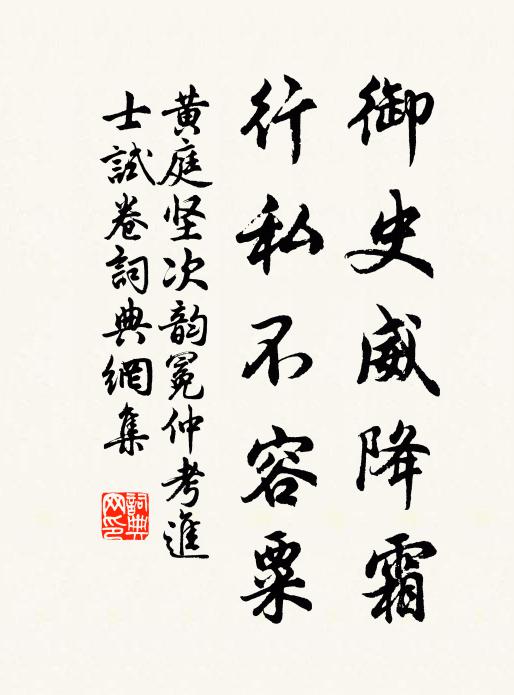 御史威降霜
行私不容粟
黄庭坚次韵冕仲考進
士試卷詞典網集
詞典
网印